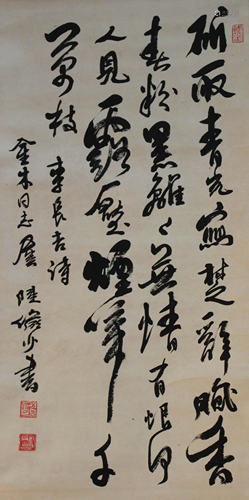 斫取青光寫楚辭膩香
春粉黑離〻無情有恨何
人見露壓煙啼千
萬枝 李長吉詩
同志屬 陸儼少書